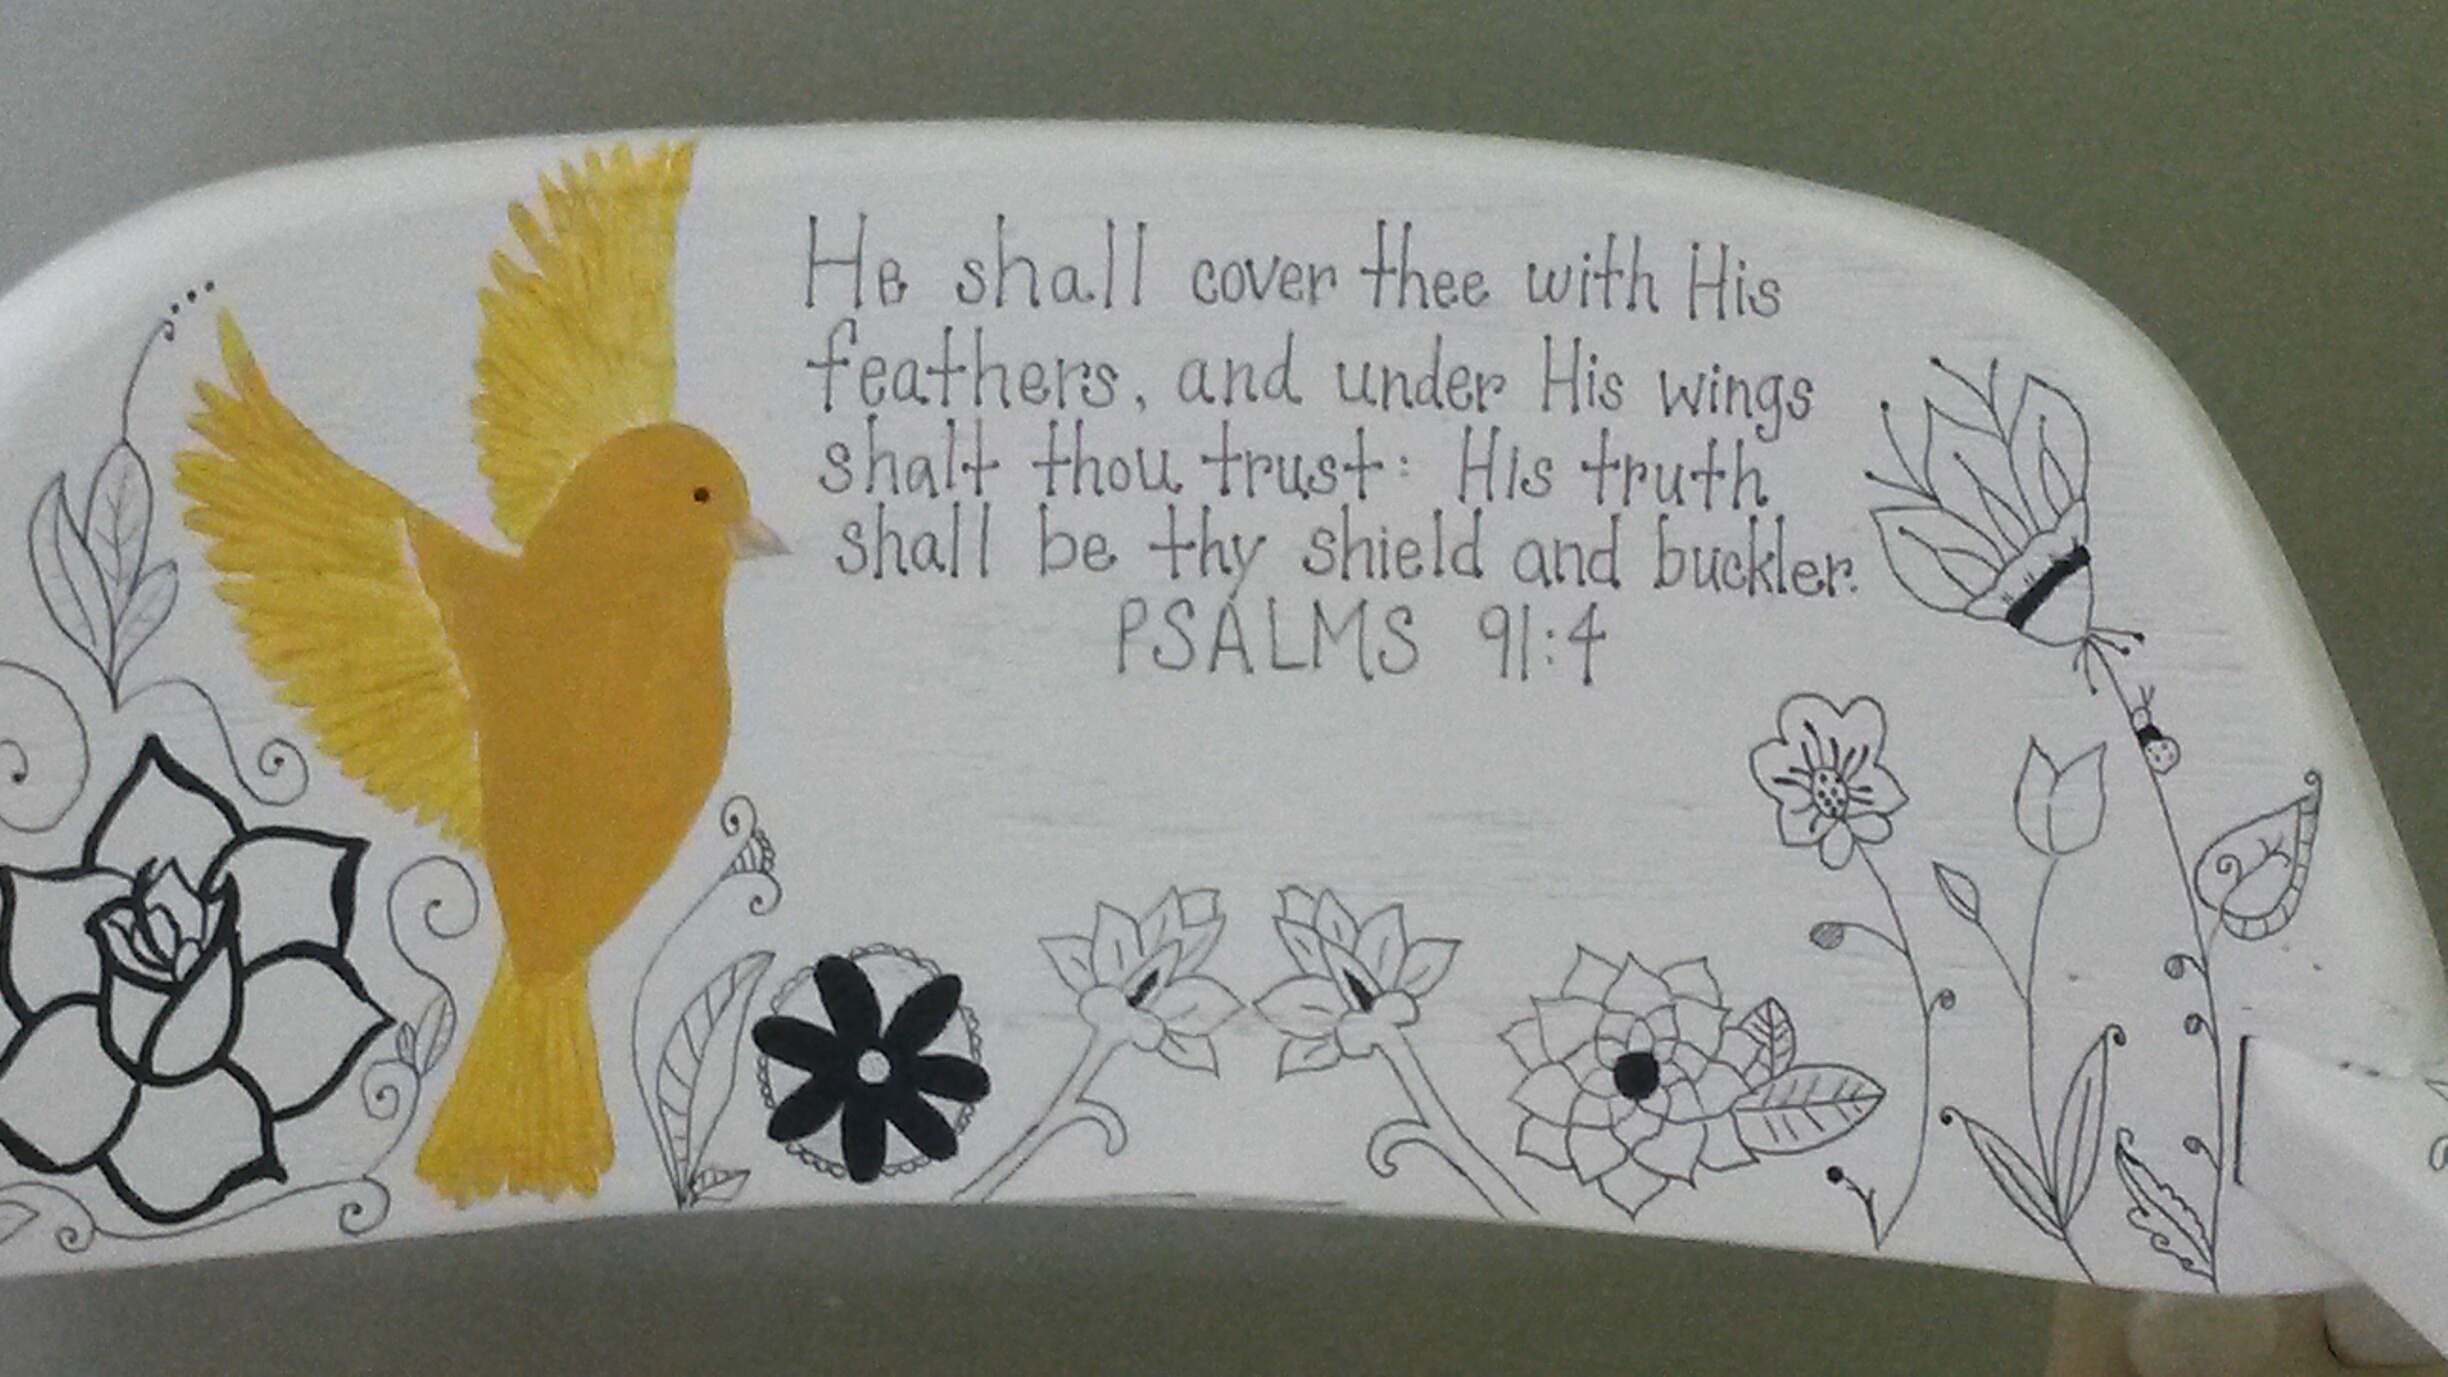 He shall cover thee with His
feathers, and under His wings
shalt thou trust: His truth
shall be thy shield and buckler.
PSALMS 91:4